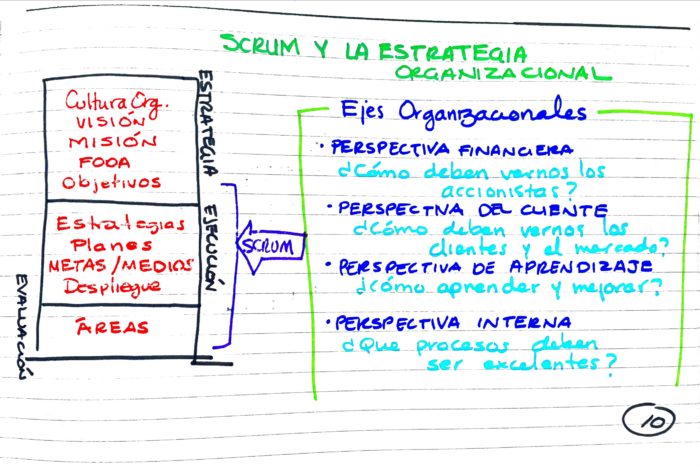 SCRUM Y LA ESTRATEGIA
ORGANIZACIONAL
Cultura Org.
VISIÓN
MISIÓN
FODA
Objetivos
Estrategias
Planes
METAS/MEDIOS
Despliegue
ÁREAS
ESTRATEGIA
EJECUCIÓN
EVALUACIÓN
SCRUM
Ejes Organizacionales
• PERSPECTIVA FINANCIERA
¿Cómo deben vernos los
accionistas?
• PERSPECTIVA DEL CLIENTE
¿Cómo deben vernos los
clientes y el mercado?
• PERSPECTIVA DE APRENDIZAJE
¿cómo aprender y mejorar?
• PERSPECTIVA INTERNA
¿Que procesos deben
ser excelentes?
10